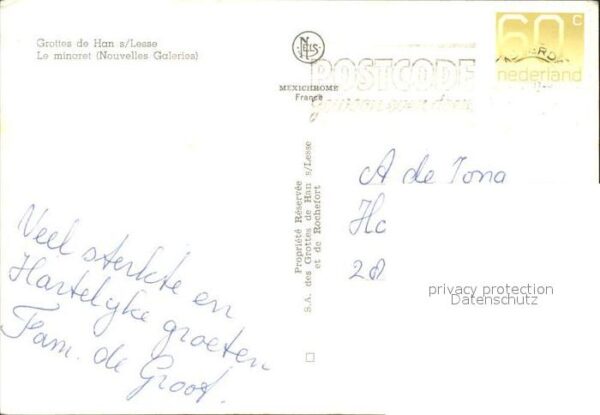 Grottes de Han s/Lesse
Le minaret (Nouvelles Galeries)
NELS
MEXICHROME
France
POSTCODE
gewoon even doen
60 c
nederland
Propriété Réservée
S.A. des Grottes de Han s/Lesse
et de Rochefort
Veel sterkte en
Hartelijke groeten
Fam. de Groot.
A de Jona
Hc
28
privacy protection
Datenschutz